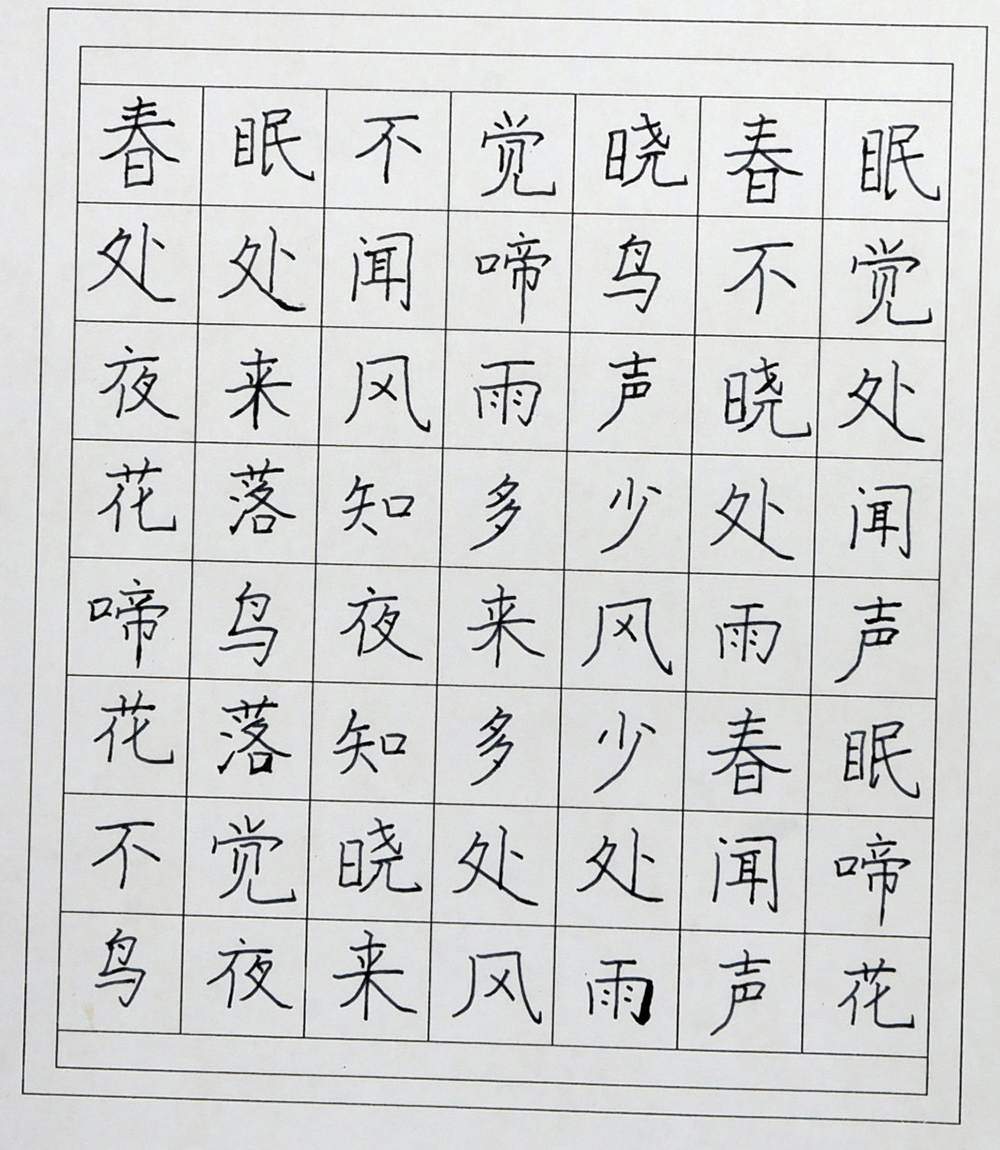 春眠不觉晓春眠
处处闻啼鸟不觉
夜来风雨声晓处
花落知多少处闻
啼鸟夜来风雨声
花落知多少春眠
不觉晓处处闻啼
鸟夜来风雨声花